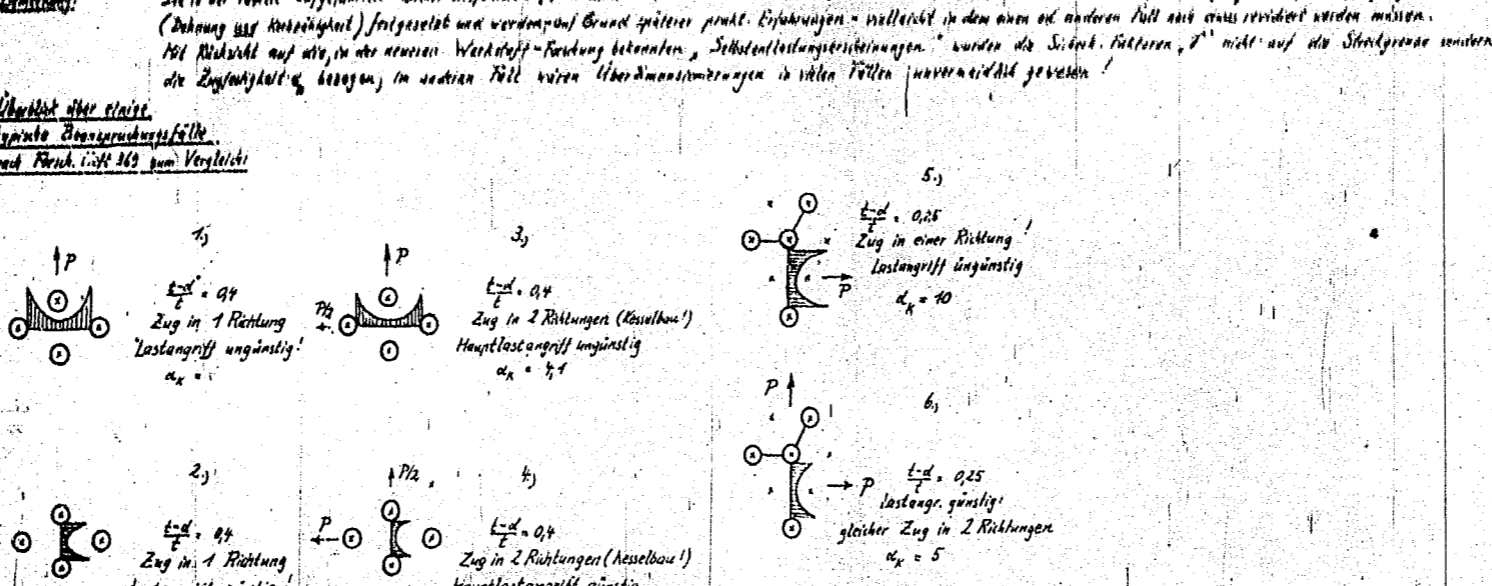 (Dehnung und Kerbzähigkeit) festgesetzt und werden, auf Grund späterer prakt. Erfahrungen - vielleicht in dem einen od anderen Fall noch etwas revidiert werden müssen.
Mit Rücksicht auf die, in der neueren Werkstoff-Forschung bekannten „Selbstentlastungserscheinungen" wurden die Sicherh. Faktoren nicht auf die Streckgrenze sondern
die Zugfestigkeit bezogen, im anderen Fall wären Überdimensionierungen in vielen Fällen unvermeidlich gewesen!
Überblick über einige
typische Beanspruchungsfälle
nach Forsch. Heft 369 zum Vergleich:
1.)
P
t-d/t = 0,4
Zug in 1 Richtung
Lastangriff ungünstig!
α_K =
3.)
P
P/2
t-d/t = 0,4
Zug in 2 Richtungen (Kesselbau!)
Hauptlastangriff ungünstig
α_K = 4,1
5.)
t-d/t = 0,25
Zug in einer Richtung!
Lastangriff ungünstig
P
α_K = 10
2.)
t-d/t = 0,4
Zug in 1 Richtung
4.)
P/2
P
t-d/t = 0,4
Zug in 2 Richtungen (Kesselbau!)
Hauptlastangriff günstig
6.)
P
P
t-d/t = 0,25
Lastangr. günstig!
gleicher Zug in 2 Richtungen
α_K = 5